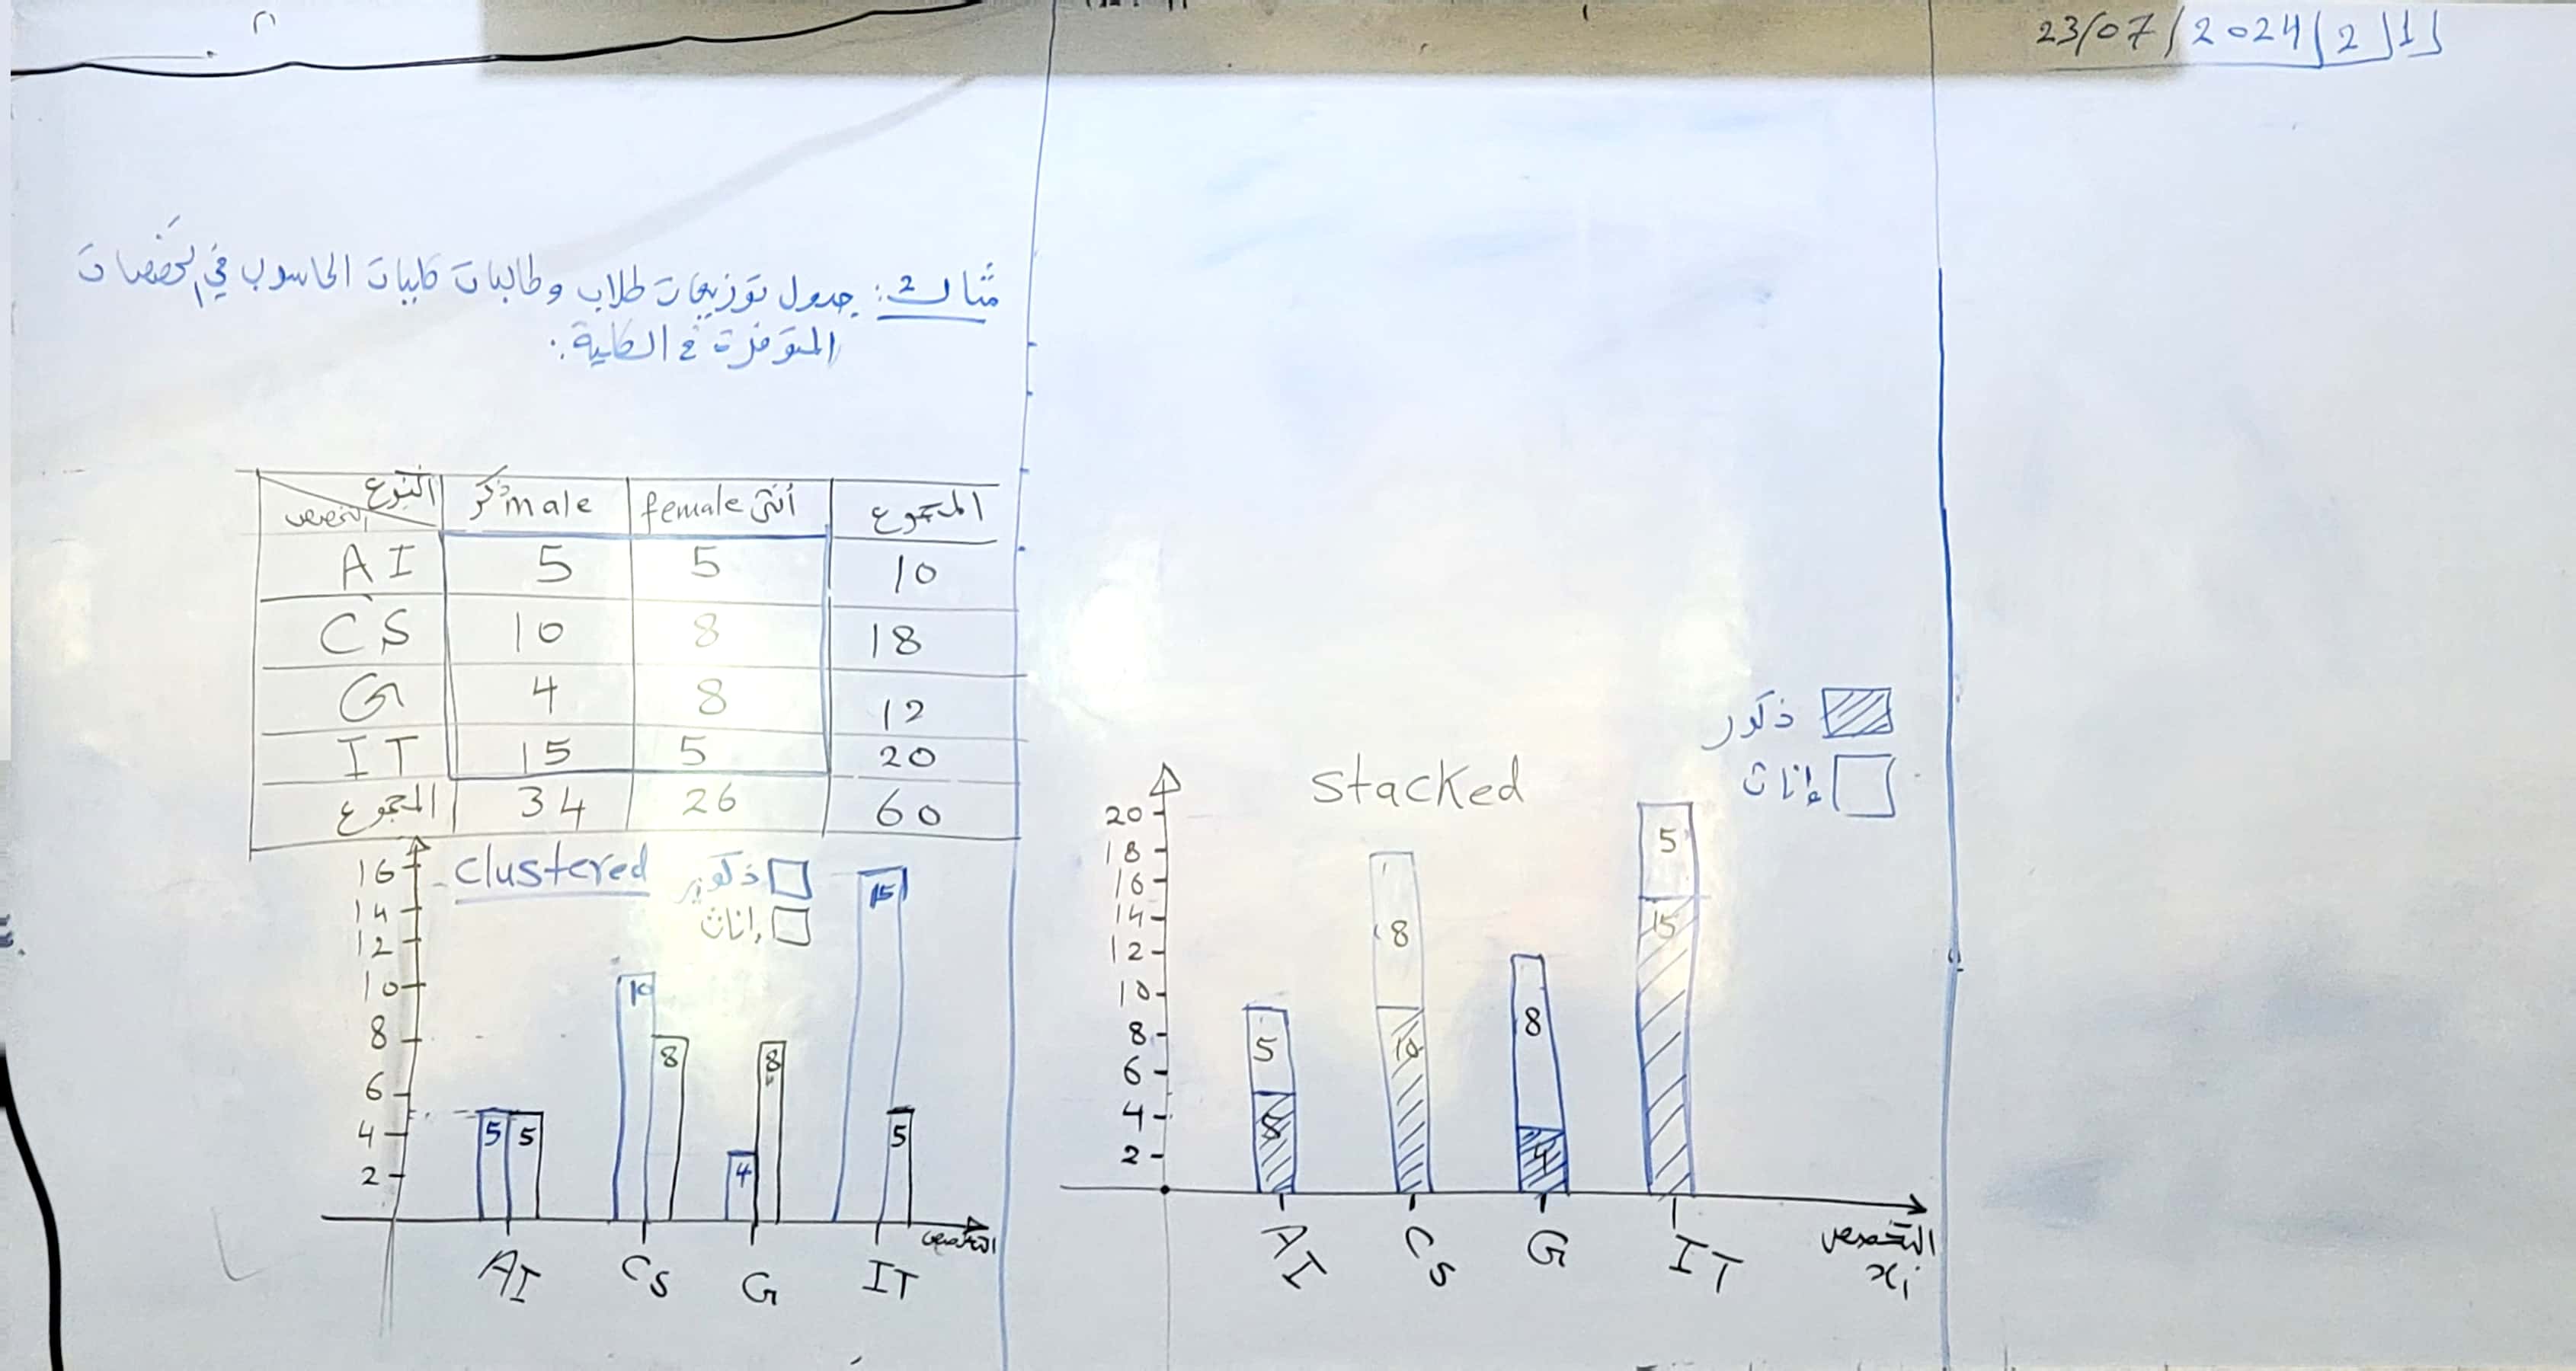 23/07/2024
مثال 2: جدول توزيعات طلاب وطالبات كليات الحاسوب في تخصصات
المتوفرة في الكلية:
النوع
التخصص
ذكر male
female أنثى
المجموع
AI 5 5 10
CS 10 8 18
G 4 8 12
IT 15 5 20
المجموع 34 26 60
clustered
ذكور
إناث
16
14
12
10
8
6
4
2
5 5
10 8
4 8
15 5
AI CS G IT
التخصص
stacked
ذكور
إناث
20
18
16
14
12
10
8
6
4
2
5 5
8 10
8 4
5 15
AI CS G IT
التخصص
xi